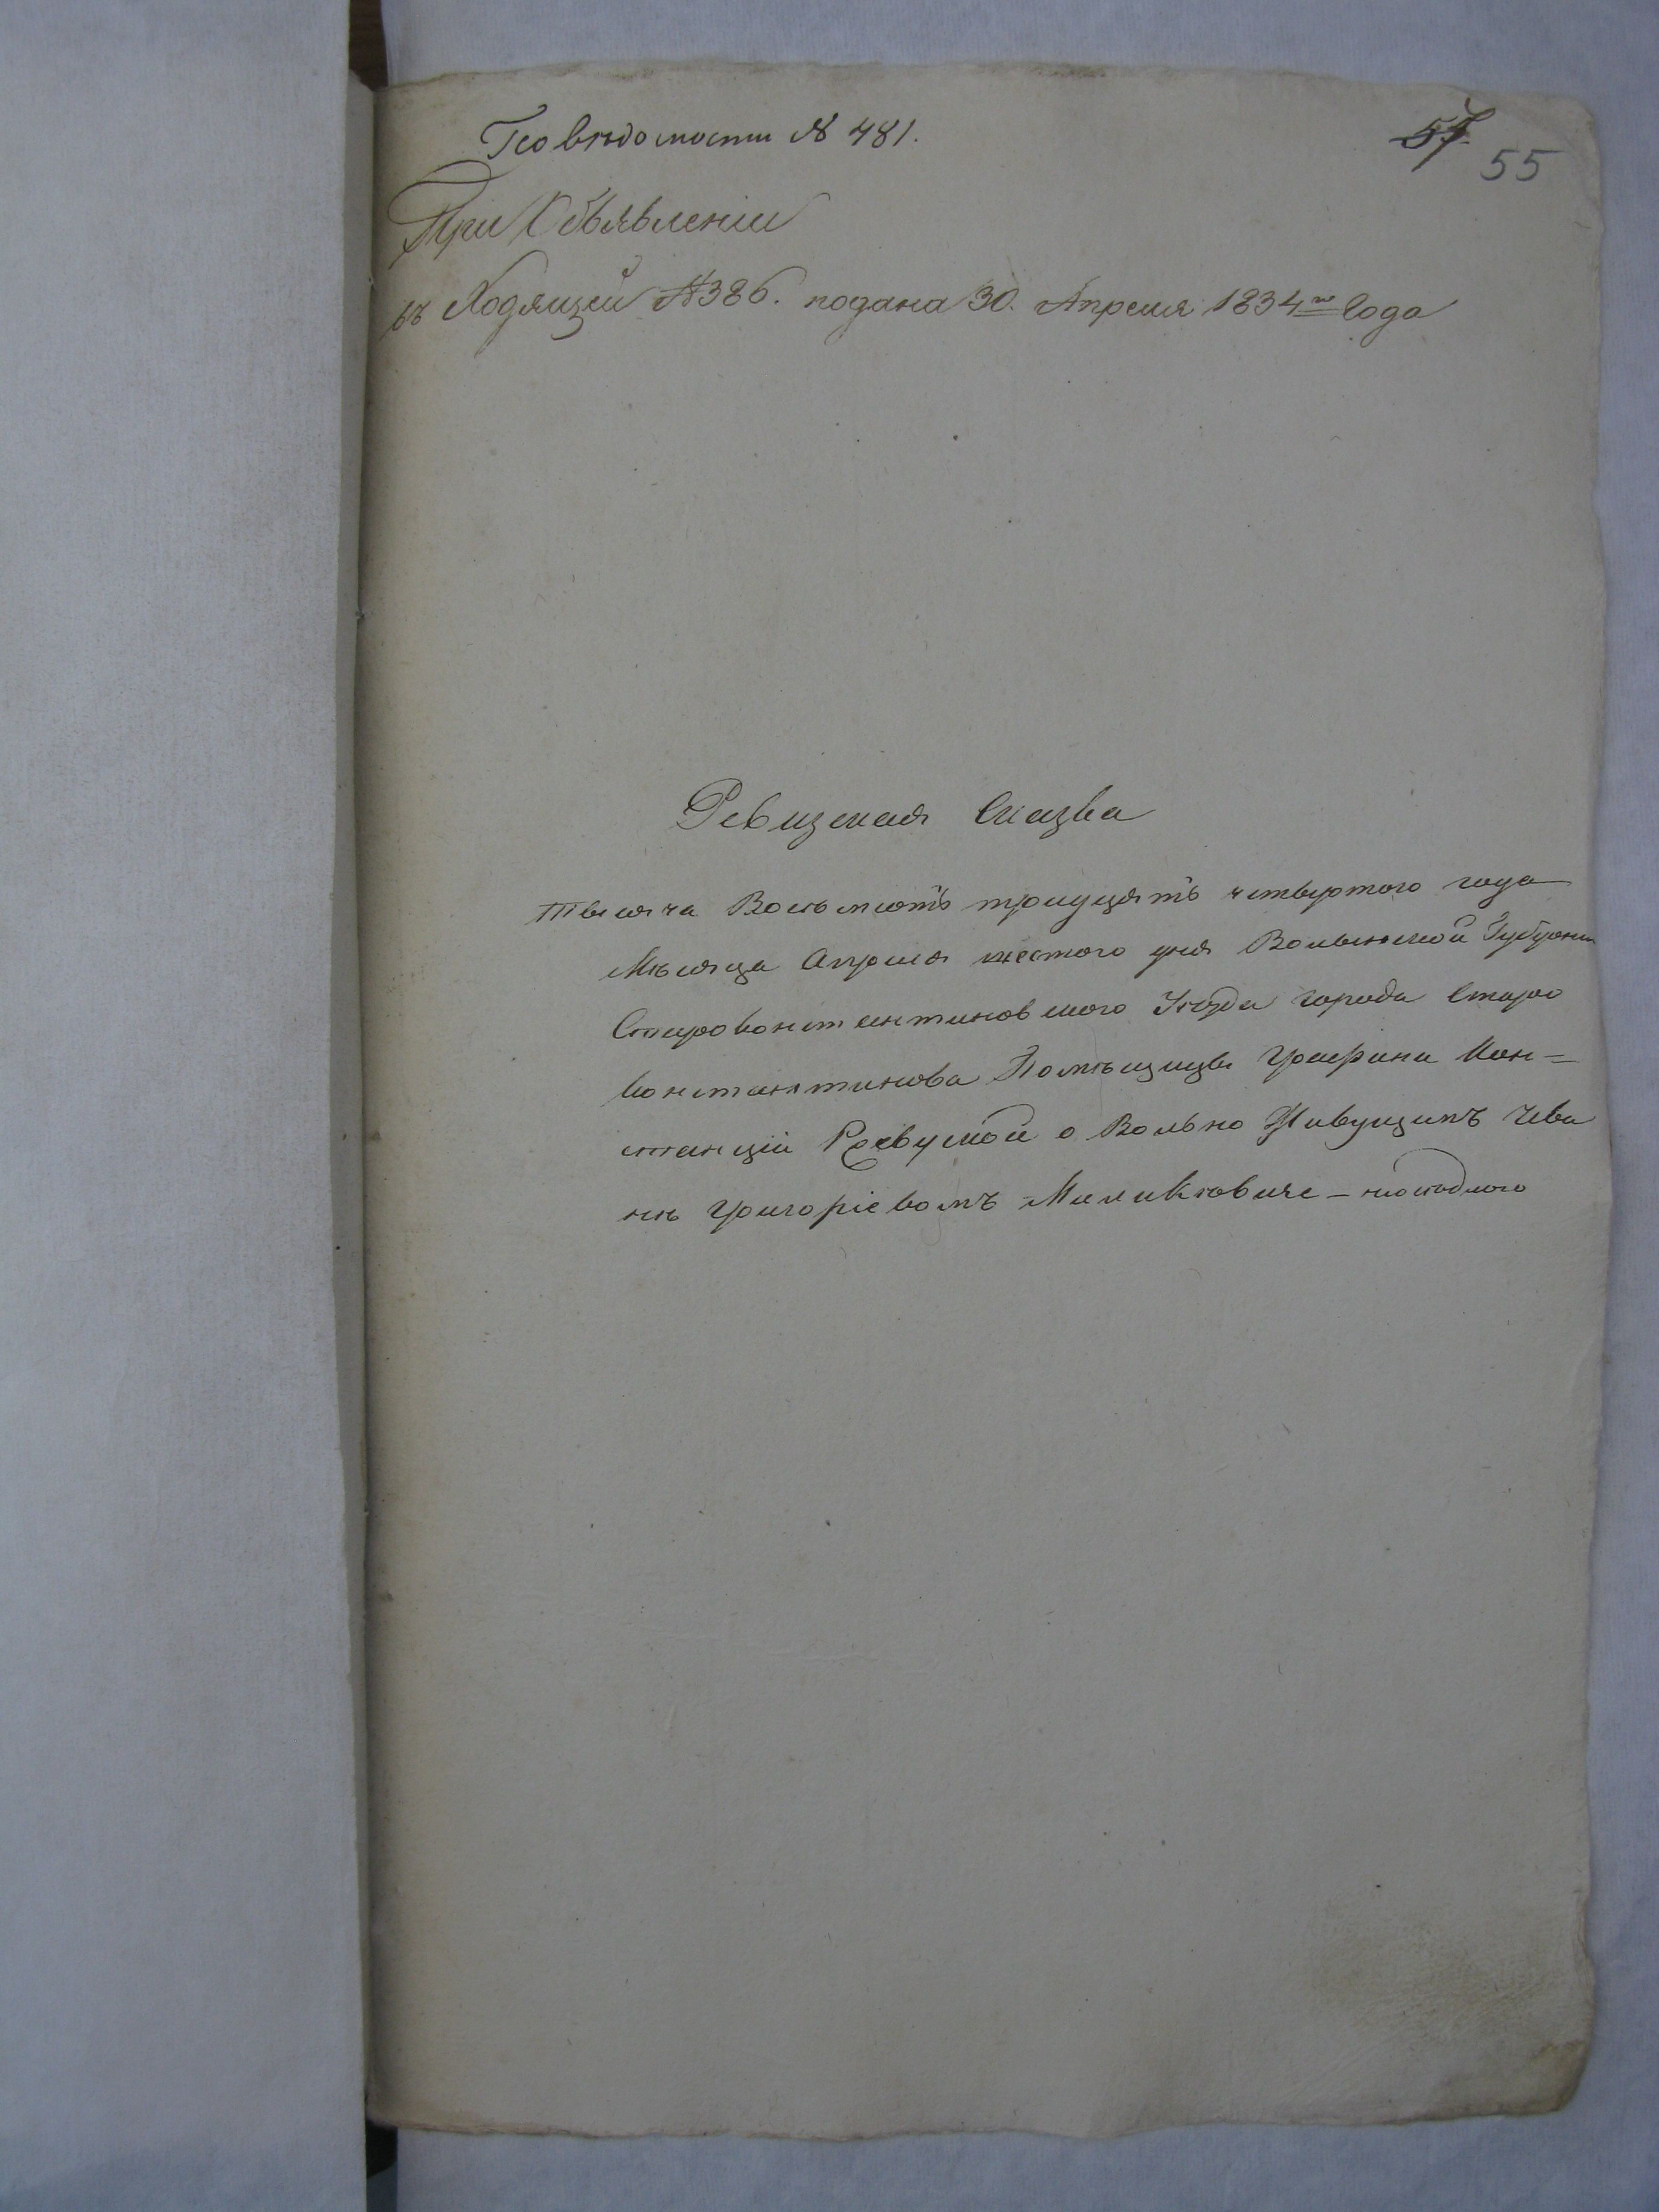 По вѣдомости № 481.
57. 55
При Объявленіи
въ Ходящей № 386. подана 30. Апреля 1834го Года
Ревизская Сказка
тысяча Восьмсотъ тридцять четвертого года
Мѣсяца Апреля шестого дня Волынской Губерни
Староконстантиновского Уезда города Старо
константинова Помѣщицы Графини Кон=
станціи Ржевуской о Вольно Живущимъ
Григоріевомъ